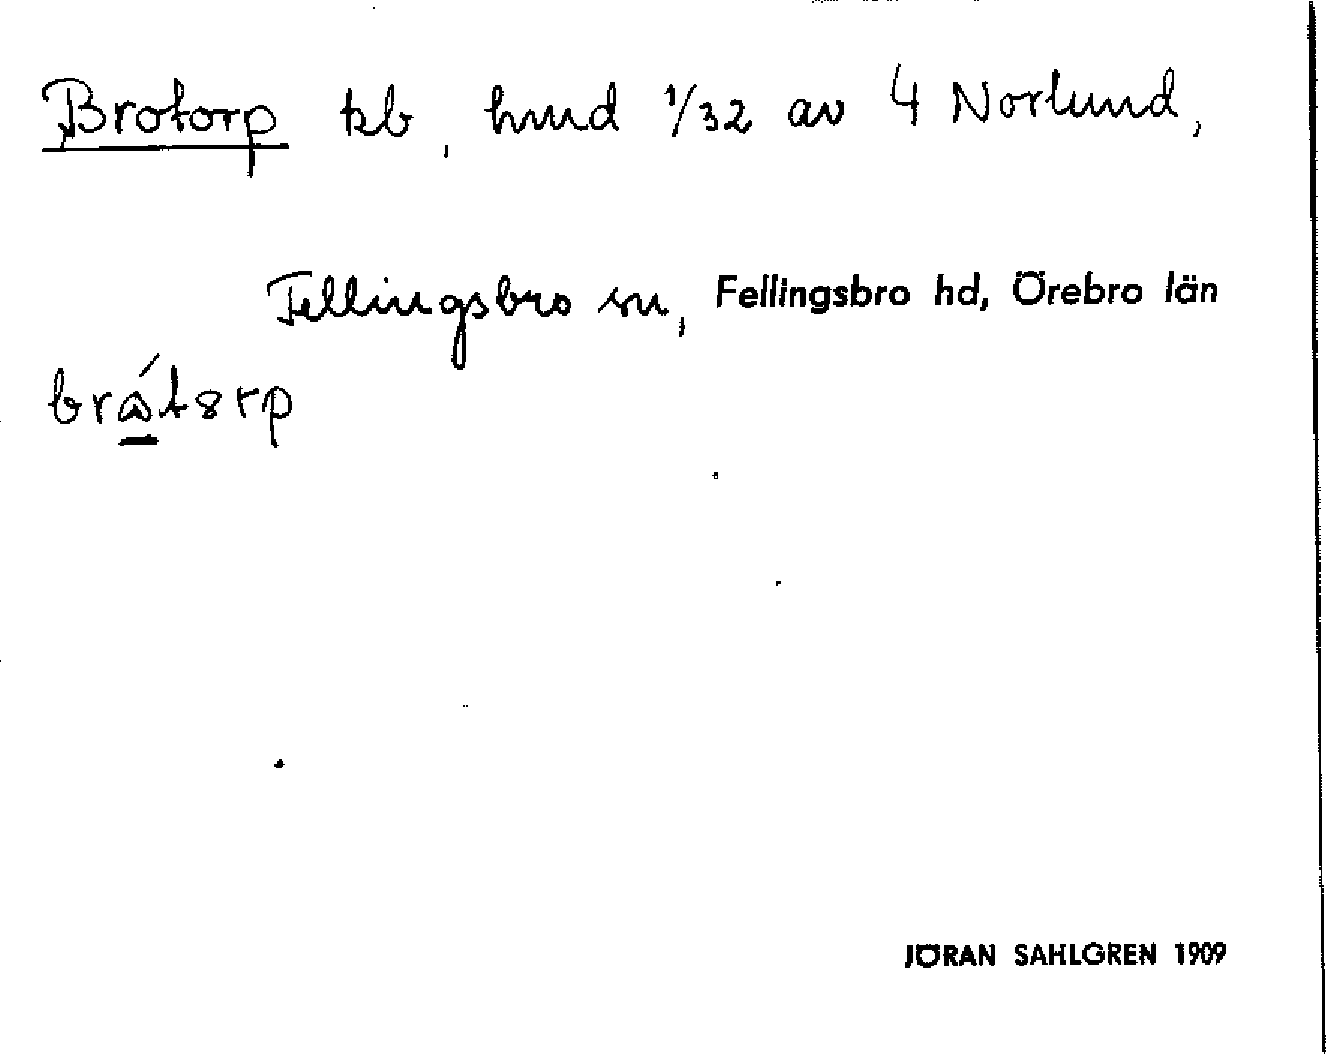 Brotorp tzb, hmd 1/32 av 4 Norlund,
Fellingsbro sn, Fellingsbro hd, Örebro län
JÖRAN SAHLGREN 1909